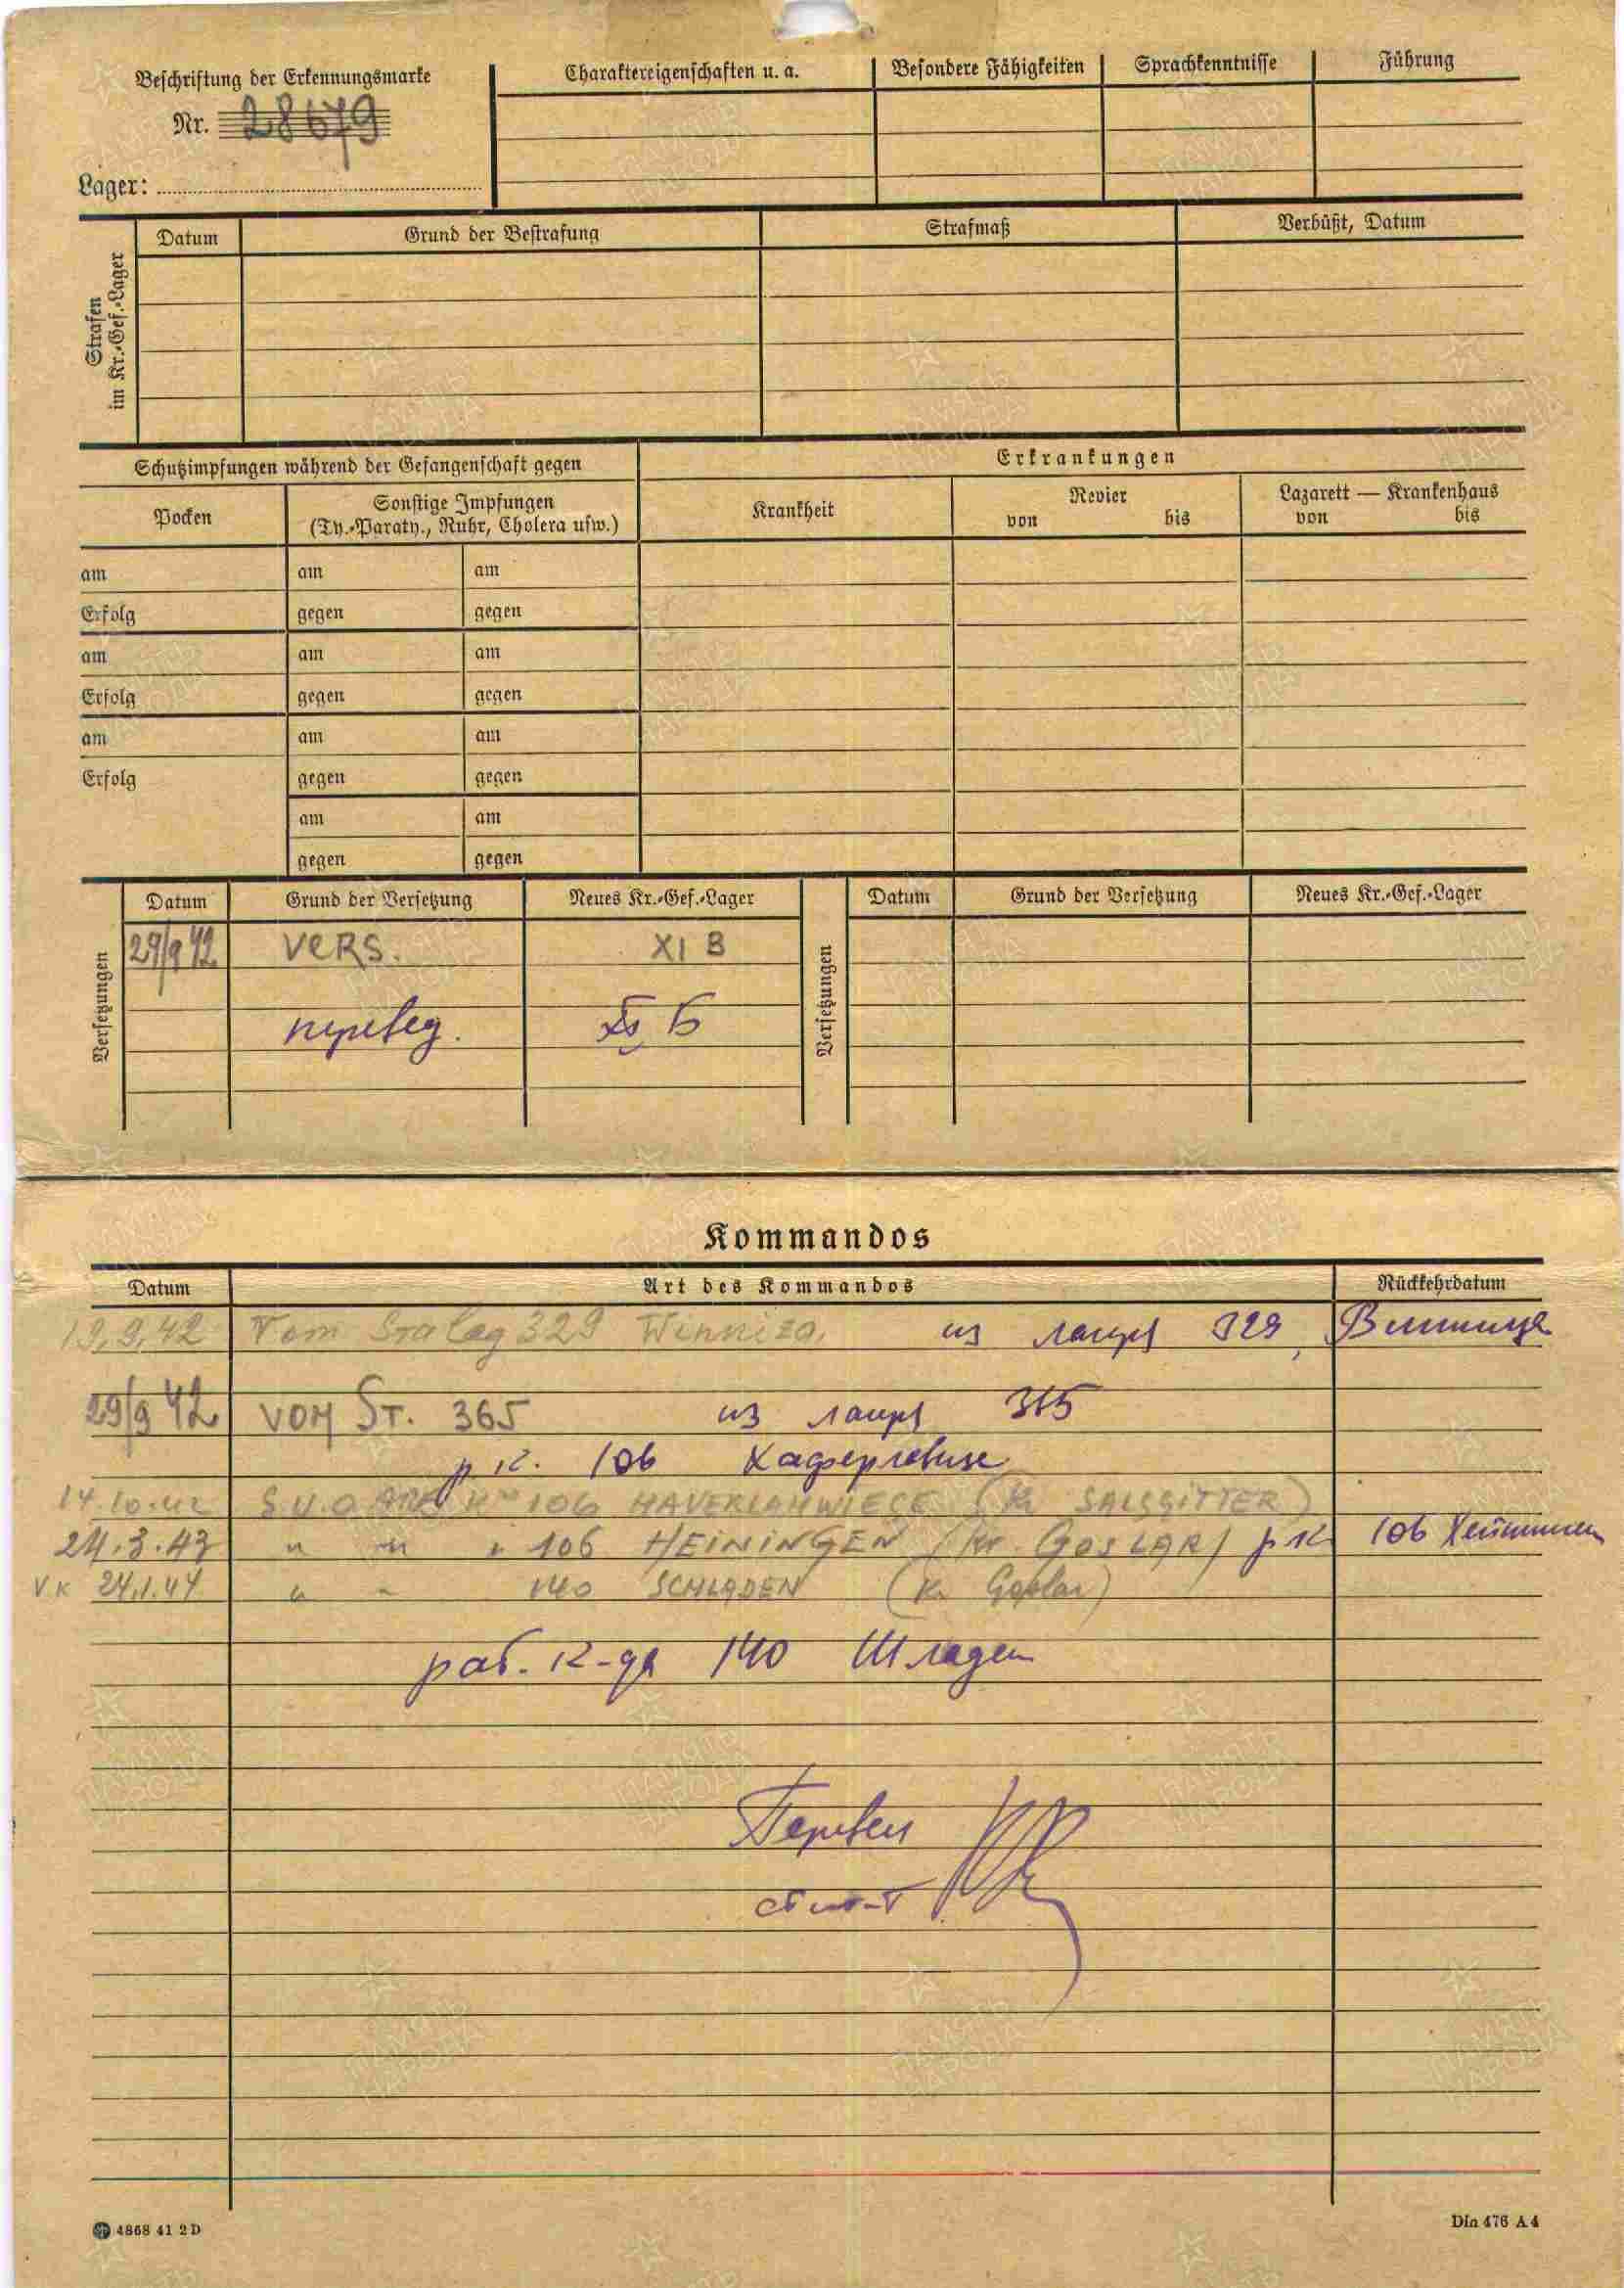 Beschriftung der Erkennungsmarke
Nr. 28679
Lager:
Charaktereigenschaften u. a. Besondere Fähigkeiten Sprachkenntnisse Führung
Strafen
im Kr.-Gef.-Lager
Datum Grund der Bestrafung Strafmaß Verbüßt, Datum
Schutzimpfungen während der Gefangenschaft gegen
Erkrankungen
Pocken
Sonstige Impfungen
(Ty.-Paraty., Ruhr, Cholera usw.)
Krankheit
Revier
von bis
Lazarett — Krankenhaus
von bis
am am am
Erfolg gegen gegen
am am am
Erfolg gegen gegen
am am am
Erfolg gegen gegen
am am
gegen gegen
Versetzungen
Datum Grund der Versetzung Neues Kr.-Gef.-Lager
29/9 42 VERS. XI B
перевед. XI Б
Versetzungen
Datum Grund der Versetzung Neues Kr.-Gef.-Lager
Kommandos
Datum Art des Kommandos Rückkehrdatum
19.9.42 Vom Stalag 329 Winniza. из лагеря 329, Винница
29/9 42 VOM ST. 365 из лагеря 365
р к. 106 Хаферлевизе
14.10.42 106 HAVERLAHWIESE (Kr SALSGITTER)
24.3.43 " " " 106 HEININGEN (Kr. GOSLAR) р к 106 Хейнинген
24.1.44 " " 140 SCHLADEN (Kr Goslar)
раб. к-да 140 Шладен
Перевел
ст л-т
4868 41 2D
Din 476 A 4
ПАМЯТЬ
НАРОДА